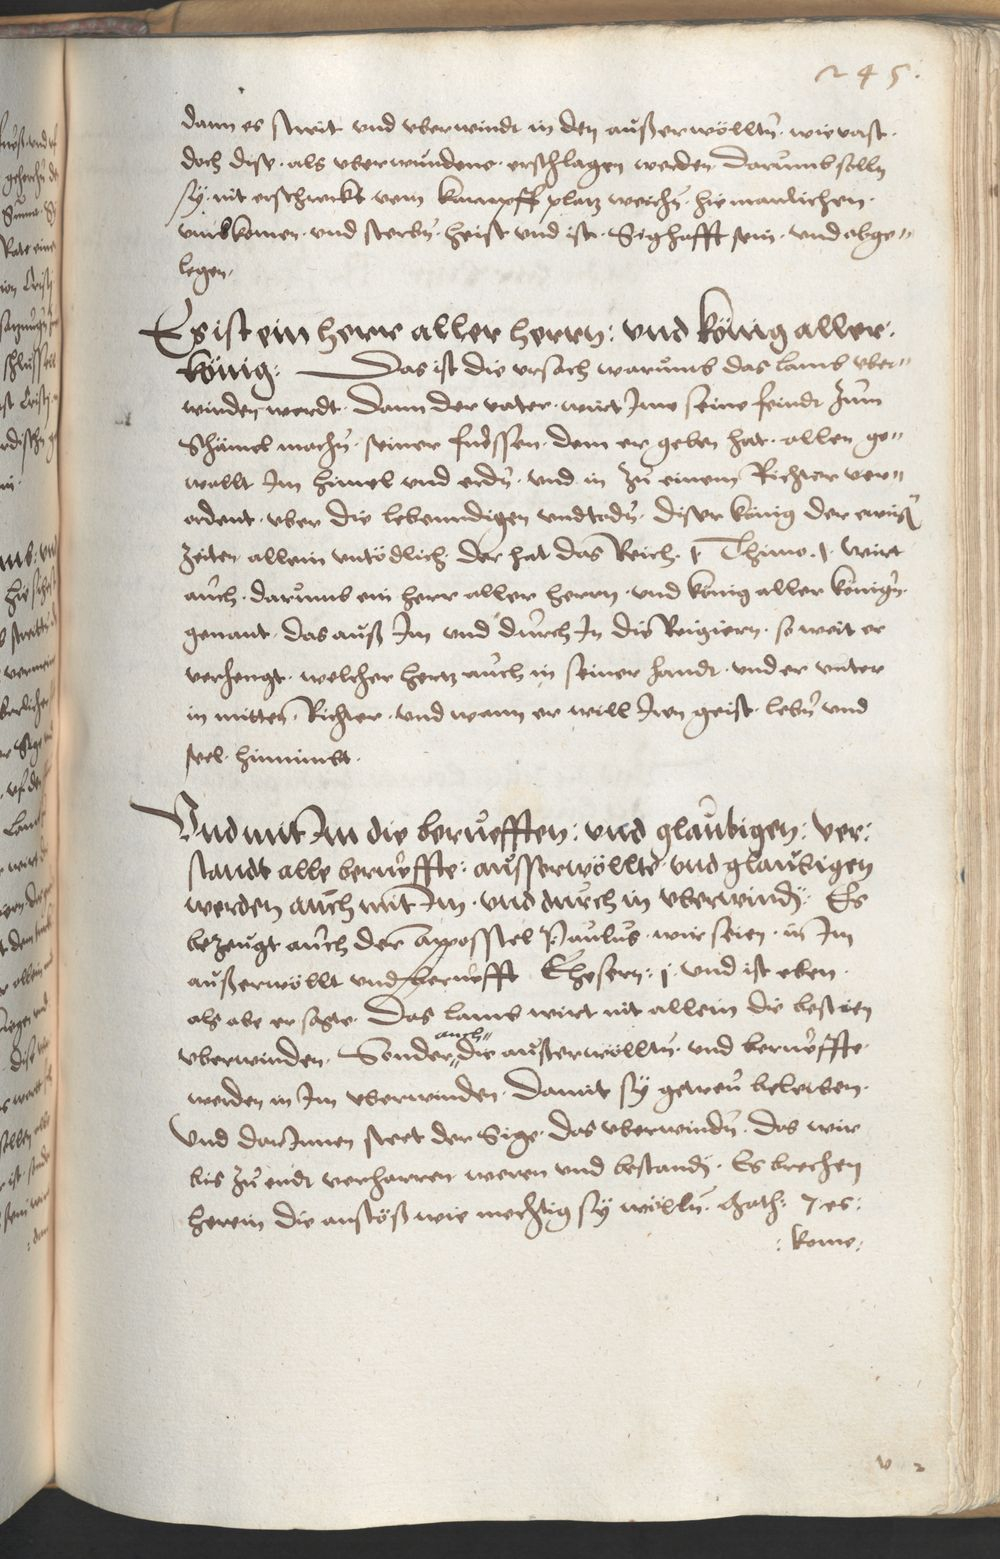 245.
dann es streit vnd vberwindt in den außerwöllten. wie vast.
doch dise. als vberwundene. erschlagen werden. Darumb solln
sy. nit erschreckt vom kampff platz weichn. hie manlichen.
vmbkomen. vnd sterbn. heist vnd ist. Sighafft sein. vnd obge"
legen.
Es ist ein herr aller herrn: vnd könig aller:
könig: Das ist die vrsach warumb das lamb vber"
winden werdt. Dann der vater. wirt Ime seine feindt zum
Schämel machn. seiner fuessen. dem er geben hat. allen ge"
wallt Im himel vnd erdn. vnd in zu einem Richter ver"
ordent. vber die lebenndigen vnd todn. diser könig der
zeiten allein vntödlich. der hat das Reich. 1 Thimo. 1. wirt
auch. darumb ein herr aller herrn. vnd könig aller könign.
genant. das auß Im vnd durch In die Reigiern. so weit er
verhengt. welcher hertz auch in seiner handt. vnd er vnter
in mitten. Richter. vnd wann er will Iren geist. lebn vnd
seel. hinnimbt.
Vnd mit Im die berueefften: vnd glaubigen: ver:
standt alle berueffte: ausserwöllte. vnd glaubigen
werden auch mit Im. vnd durch in vberwindn. Es
bezeugt auch der apposstel Paulus. wir seien. in Im
außerwöllt vnd berüefft Ehesern: j. vnd ist eben.
als abe er sagte. Das lamb wirt nit allein die bestien
vberwinden. Sonder auch" die außerwöllten. vnd berueffte.
werden in Im vberwinden. Damit sy getreu beleiben.
Vnd darInnen steet der Sige. das vberwindn. das wir
bis zu endt verharren weren vnd bestandn. Es brechen
herein die anstöß wie mechtig sy wölln. Math: 7. es:
: kome:
v 2